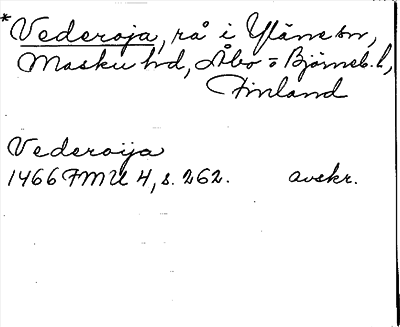 *Vederoja, rå i Yläne sn,
Masku hd, Åbo o Björneb. l,
Finland
Vederoija
1466 FMU 4, s. 262. avskr.